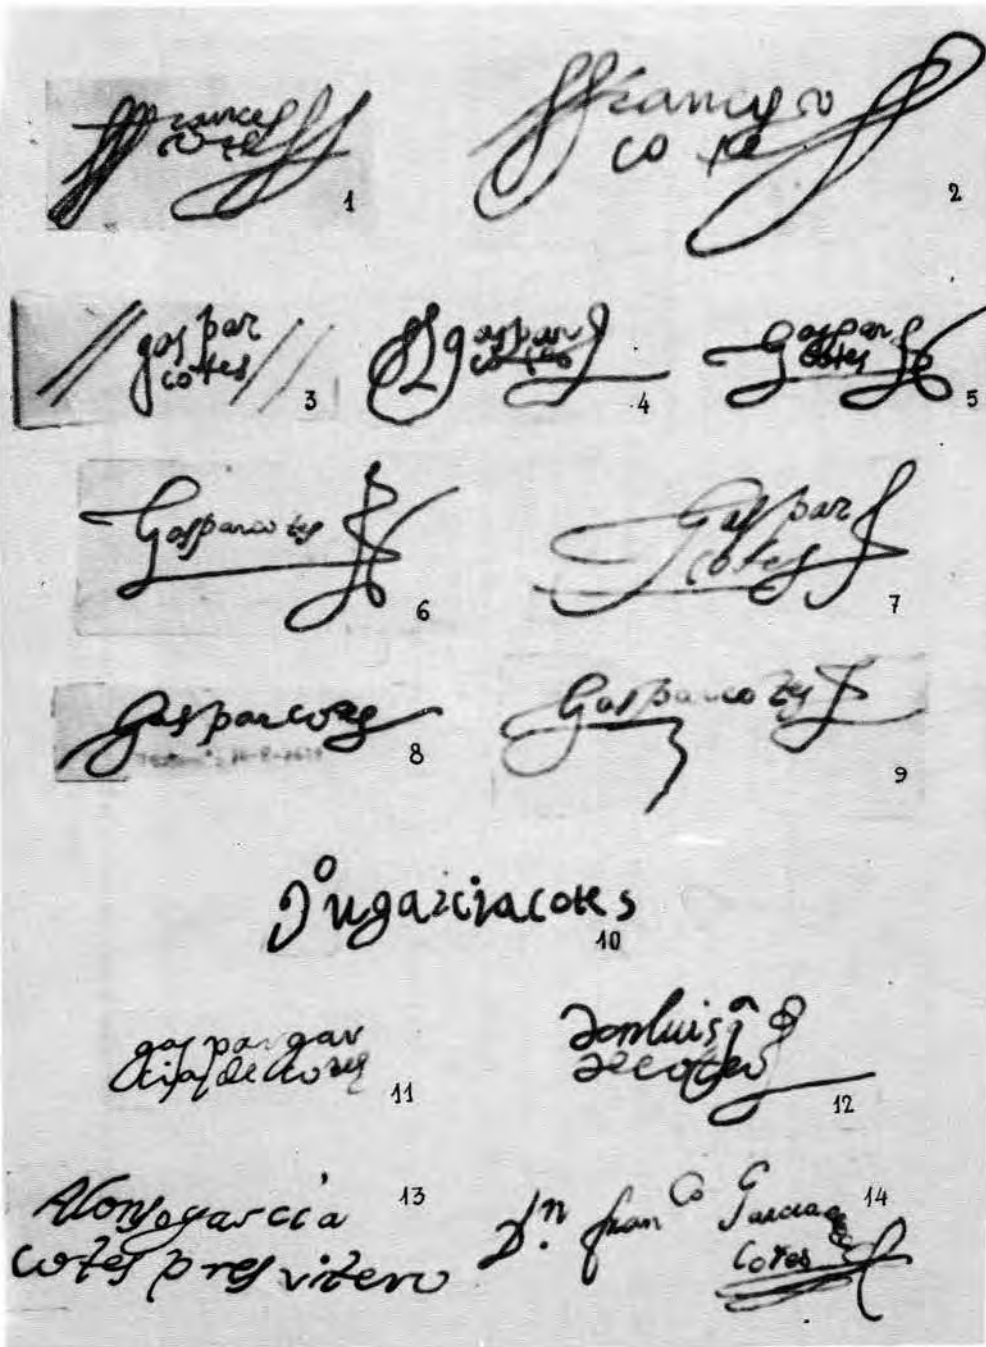 francesco
cote
1
francisco
cote
2
gaspar
cotes
3
gaspar
cotes
4
gaspar
cotes
5
Gasparcotes
6
Gaspar
cotes
7
Gasparcotes
8
Gasparcotes
9
Jºugarciacotes
10
gaspar gar
cia de cotes
11
donluis
de cotes
12
Alonsogarcia
cotes presvitero
13
Dn. franco Garcia
Cotes
14